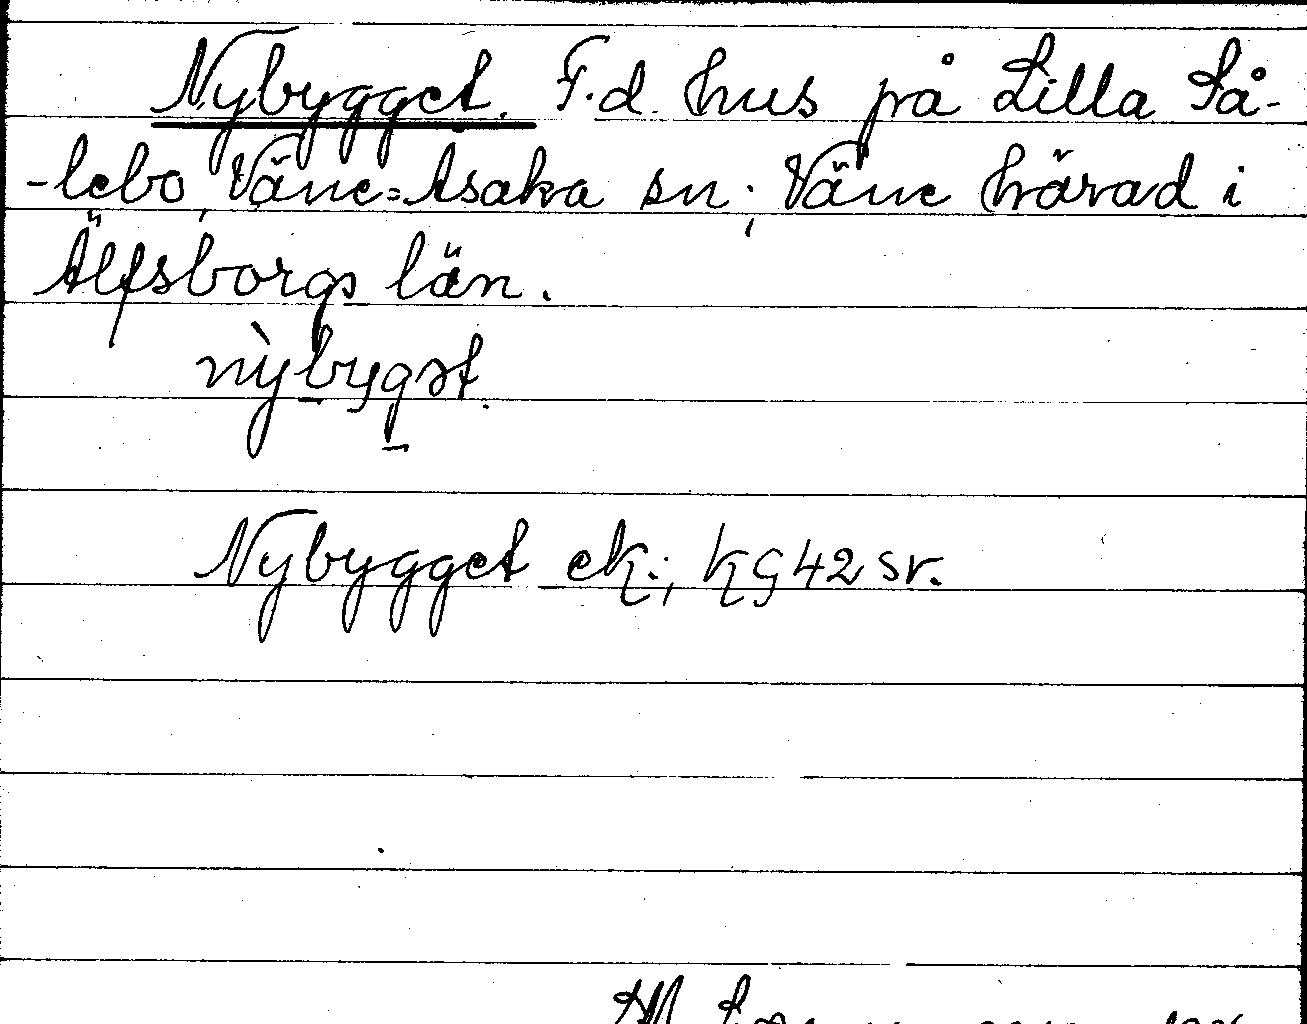 Nybygget. F.d. hus på Lilla Så-
-lebo, Väne=Åsaka sn; Väne härad i
Älfsborgs län.
nỳbygət.
Nybygget ek.; kg 42 sr.